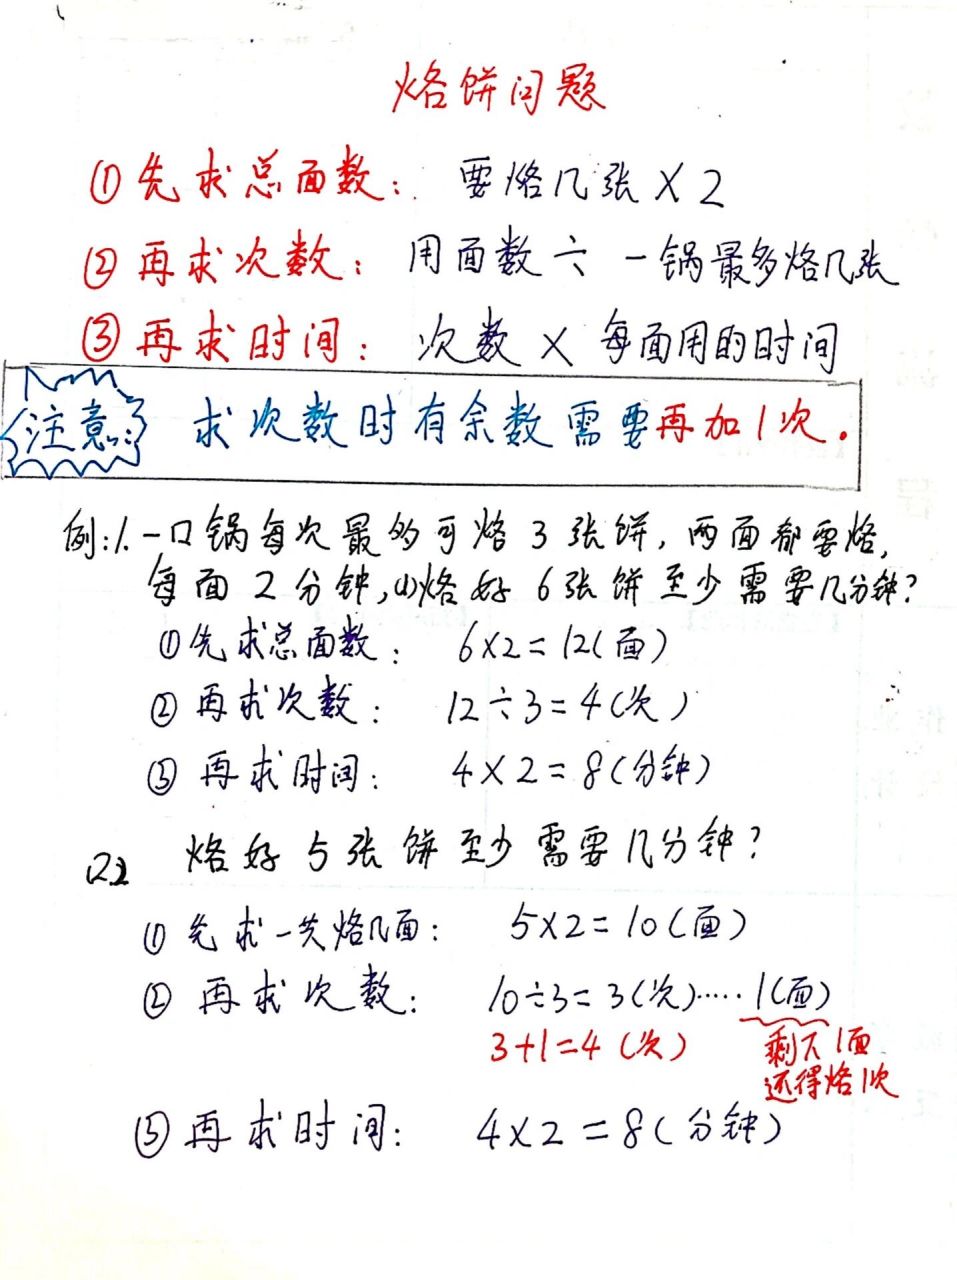 烙饼问题
①先求总面数: 要烙几张×2
②再求次数: 用面数÷一锅最多烙几张
③再求时间: 次数×每面用的时间
注意: 求次数时有余数需要再加1次.
例:1.一口锅每次最多可烙3张饼,两面都要烙,
每面2分钟,(1)烙好6张饼至少需要几分钟?
①先求总面数: 6×2=12(面)
②再求次数: 12÷3=4(次)
③再求时间: 4×2=8(分钟)
(2) 烙好5张饼至少需要几分钟?
①先求一共烙几面: 5×2=10(面)
②再求次数: 10÷3=3(次)·····1(面)
3+1=4(次) 剩下1面
还得烙1次
③再求时间: 4×2=8(分钟)